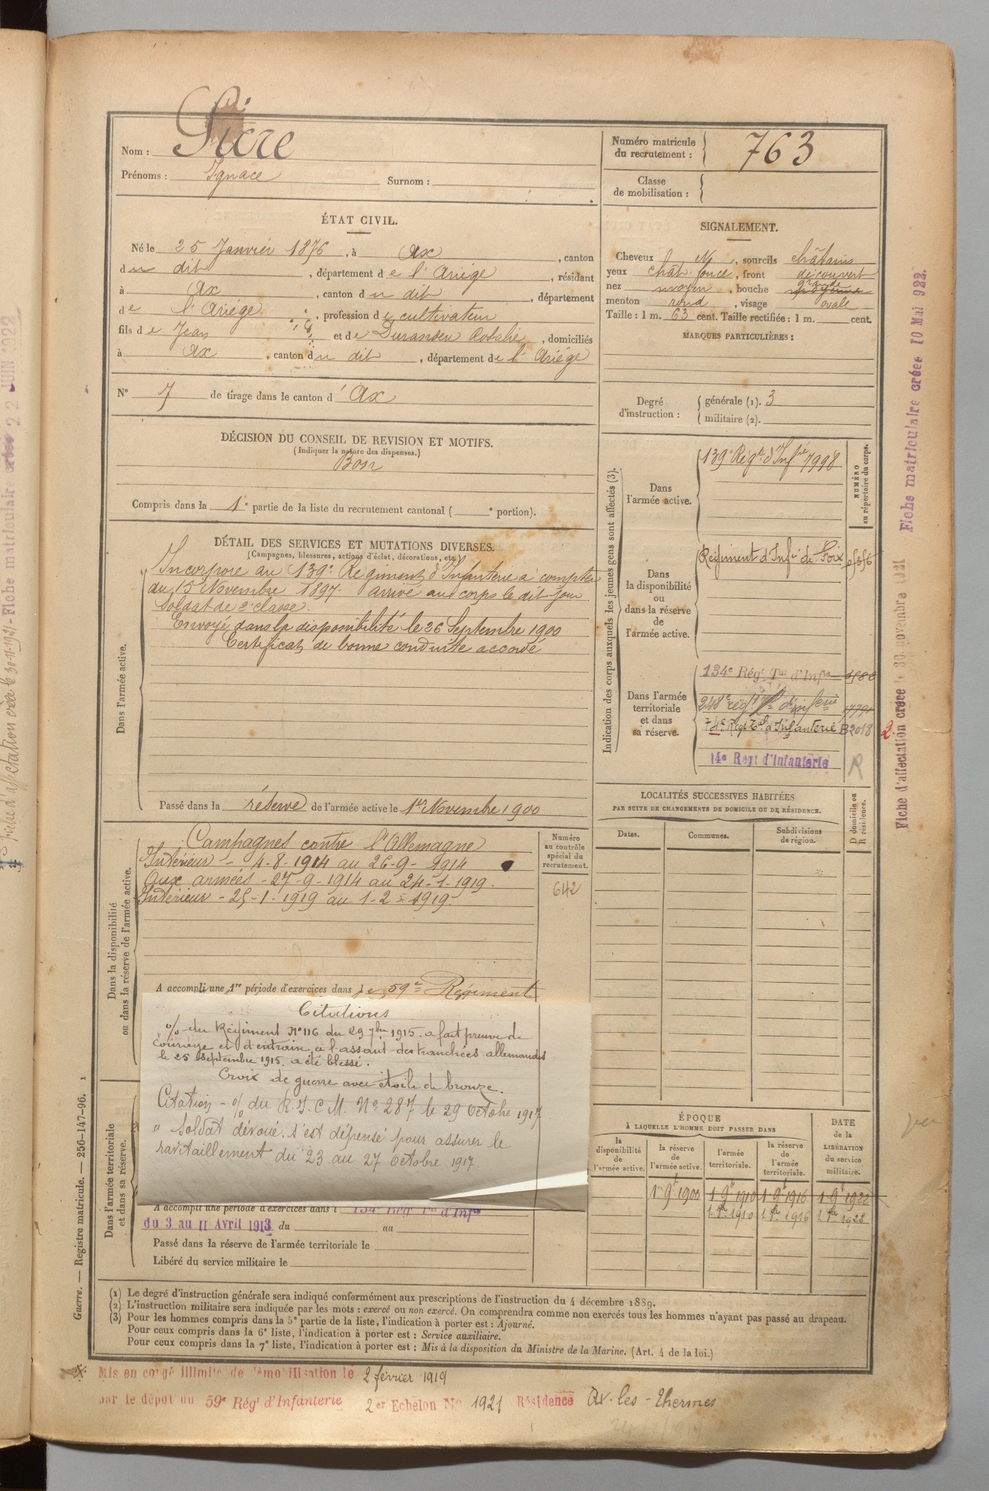 Nom : Sicre
Prénoms : Ignace Surnom :
Numéro matricule du recrutement : 763
Classe de mobilisation :
ÉTAT CIVIL.
Né le 25 Janvier 1876, à Ax, canton
du dit, département de l'Ariège, résidant
à Ax, canton du dit, département
de l'Ariège, profession de cultivateur
fils de Jean et de Durandeu Rosalie, domiciliés
à Ax, canton du dit, département de l'Ariège
N° 7 de tirage dans le canton d'Ax
SIGNALEMENT.
Cheveux , sourcils châtains
yeux chât. foncé, front découvert
nez moyen, bouche
menton rond, visage ovale
Taille : 1 m. 63 cent. Taille rectifiée : 1 m. cent.
MARQUES PARTICULIÈRES :
Degré d'instruction : générale (1). 3
militaire (2).
DÉCISION DU CONSEIL DE REVISION ET MOTIFS.
(Indiquer la nature des dispenses.)
Bon
Compris dans la 1e partie de la liste du recrutement cantonal ( e portion).
DÉTAIL DES SERVICES ET MUTATIONS DIVERSES.
(Campagnes, blessures, actions d'éclat, décorations, etc.)
Dans l'armée active.
Incorporé au 139e Régiment d'Infanterie à compter
du 15 Novembre 1897. arrivé au corps le dit jour
soldat de 2e classe.
Envoyé dans la disponibilité le 26 Septembre 1900
Certificat de bonne conduite accordé
Passé dans la réserve de l'armée active le 1er Novembre 1900
Indication des corps auxquels les jeunes gens sont affectés (3).
NUMÉRO au répertoire du corps.
Dans l'armée active.
139e Régt d'Infie 7998
Dans la disponibilité ou dans la réserve de l'armée active.
Régiment d'Infie de Foix
Dans l'armée territoriale et dans sa réserve.
134e Rég. Tal d'Infie
248e régt d'infie
Régt Tal d'Infanterie B2018
14e Regt d'Infanterie R
LOCALITÉS SUCCESSIVES HABITÉES
PAR SUITE DE CHANGEMENTS DE DOMICILE OU DE RÉSIDENCE.
Dates. Communes. Subdivisions de région. D domicile ou R résidence.
Dans la disponibilité ou dans la réserve de l'armée active.
Numéro au contrôle spécial du recrutement.
642
Campagnes contre l'Allemagne
Intérieur - 4-8-1914 au 26-9-1914
Aux armées - 27-9-1914 au 24-1-1919.
Intérieur - 25-1-1919 au 1-2-1919.
A accompli une 1re période d'exercices dans le 59e Régiment
Citations
% du Régiment N°116 du 29 7bre 1915. a fait preuve de
courage et d'entrain à l'assaut des tranchées allemandes
le 25 septembre 1915. a été blessé.
Croix de guerre avec étoile de bronze.
Citation - % du R.I.C.M. N° 287 le 29 Octobre 1917
" Soldat dévoué. s'est dépensé pour assurer le
ravitaillement du 23 au 27 Octobre 1917
Dans l'armée territoriale et dans sa réserve.
A accompli une période d'exercices dans l 134e Régt Tal d'Infie
du 3 au 11 Avril 1913 du au
Passé dans la réserve de l'armée territoriale le
Libéré du service militaire le
ÉPOQUE
À LAQUELLE L'HOMME DOIT PASSER DANS
la disponibilité de l'armée active. la réserve de l'armée active. l'armée territoriale. la réserve de l'armée territoriale. DATE de la LIBÉRATION du service militaire.
1 9e 1900 1 9e 1910 1 9e 1916 1 9e 1922
1910 1916
(1) Le degré d'instruction générale sera indiqué conformément aux prescriptions de l'instruction du 4 décembre 1889.
(2) L'instruction militaire sera indiquée par les mots : exercé ou non exercé. On comprendra comme non exercés tous les hommes n'ayant pas passé au drapeau.
(3) Pour les hommes compris dans la 5e partie de la liste, l'indication à porter est : Ajourné.
Pour ceux compris dans la 6e liste, l'indication à porter est : Service auxiliaire.
Pour ceux compris dans la 7e liste, l'indication à porter est : Mis à la disposition du Ministre de la Marine. (Art. 4 de la loi.)
Mis en congé illimité de démobilisation le 2 février 1919
par le dépôt du 59e Rég d'Infanterie 2er Echelon No 1921 Résidence Ax-les-Thermes
Guerre. — Registre matricule. — 256-147-96. 1
Fiche matriculaire créée 10 Mai 922.
Fiche d'affectation créée le 30 novembre
Fiche matriculaire créée 22 JUIN 922